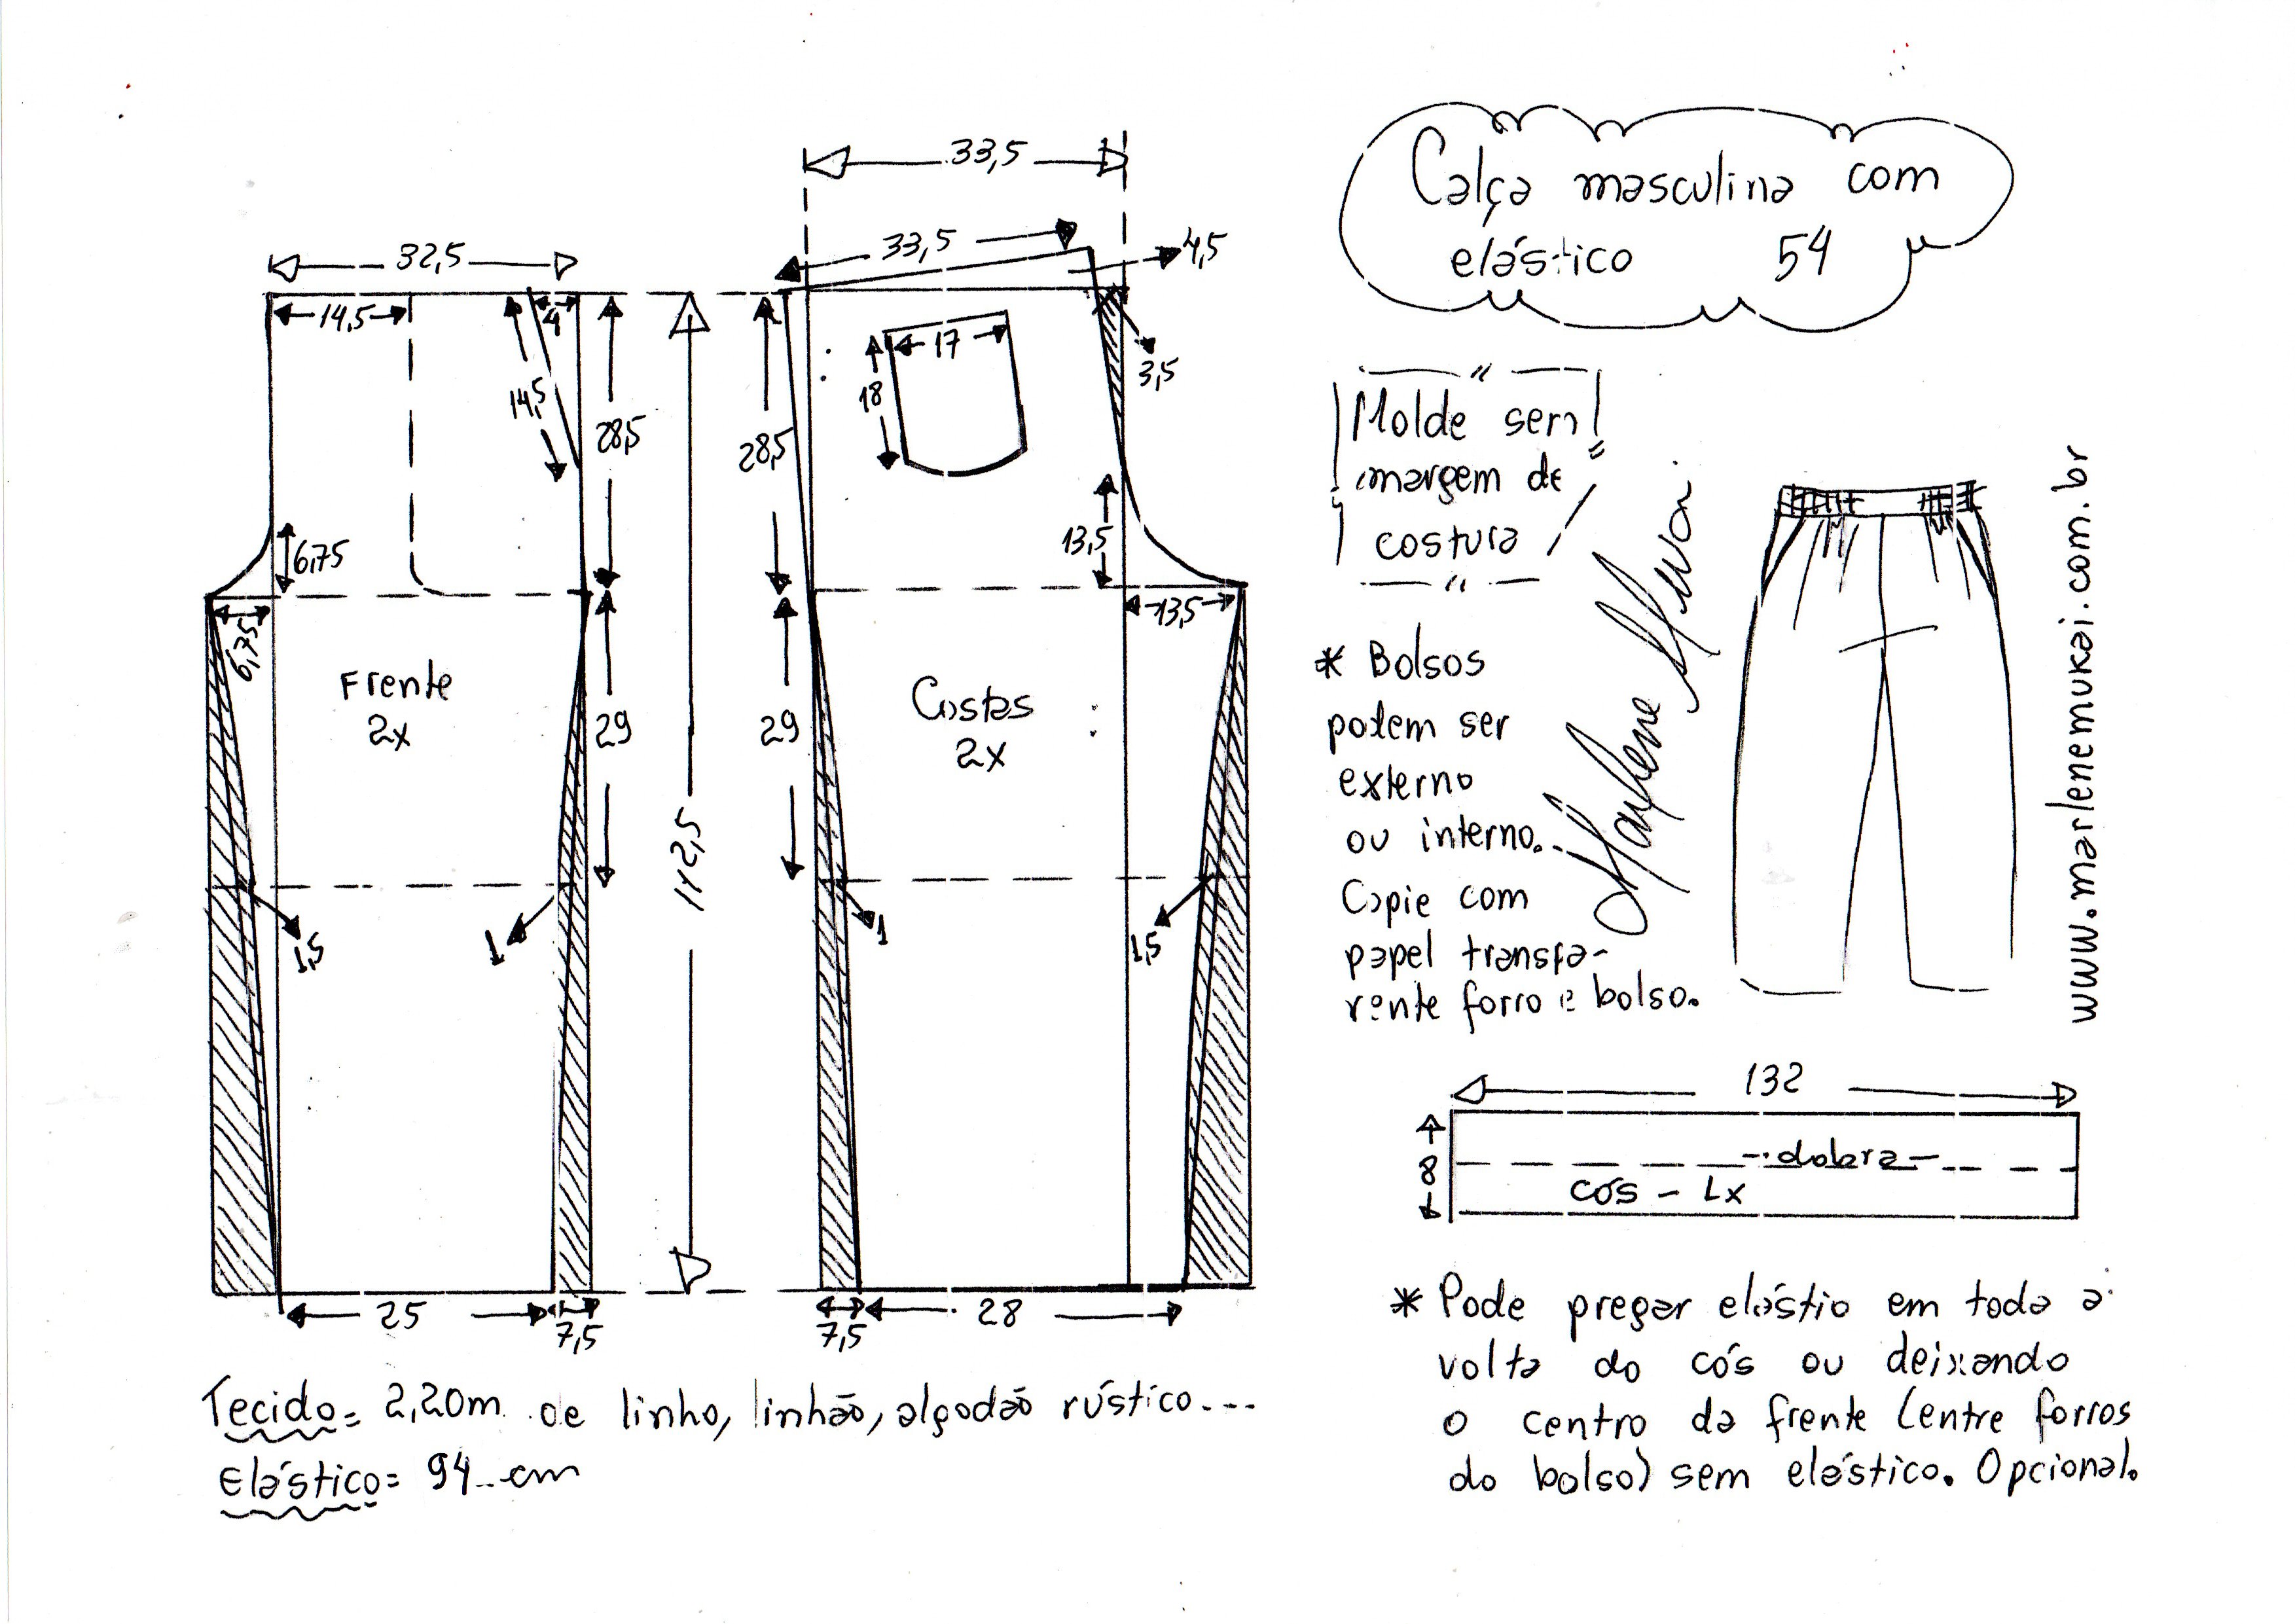 33,5
33,5
4,5
32,5
14,5
4
14,5
28,5
28,5
17
18
3,5
6,75
13,5
6,75
13,5
Frente
2x
Costas
2x
29
29
112,5
1,5
1
1
1,5
25
7,5
7,5
28
Tecido= 2,20m de linho, linhão, algodão rústico...
Elástico= 94 cm
Calça masculina com
elástico 54
Molde sem
margem de
costura
* Bolsos
podem ser
externo
ou interno.
Copie com
papel transpa-
rente forro e bolso.
www.marlenemukai.com.br
132
8
dobra
cós - 1x
* Pode pregar elástio em toda a
volta do cós ou deixando
o centro da frente (entre forros
do bolso) sem elástico. Opcional.